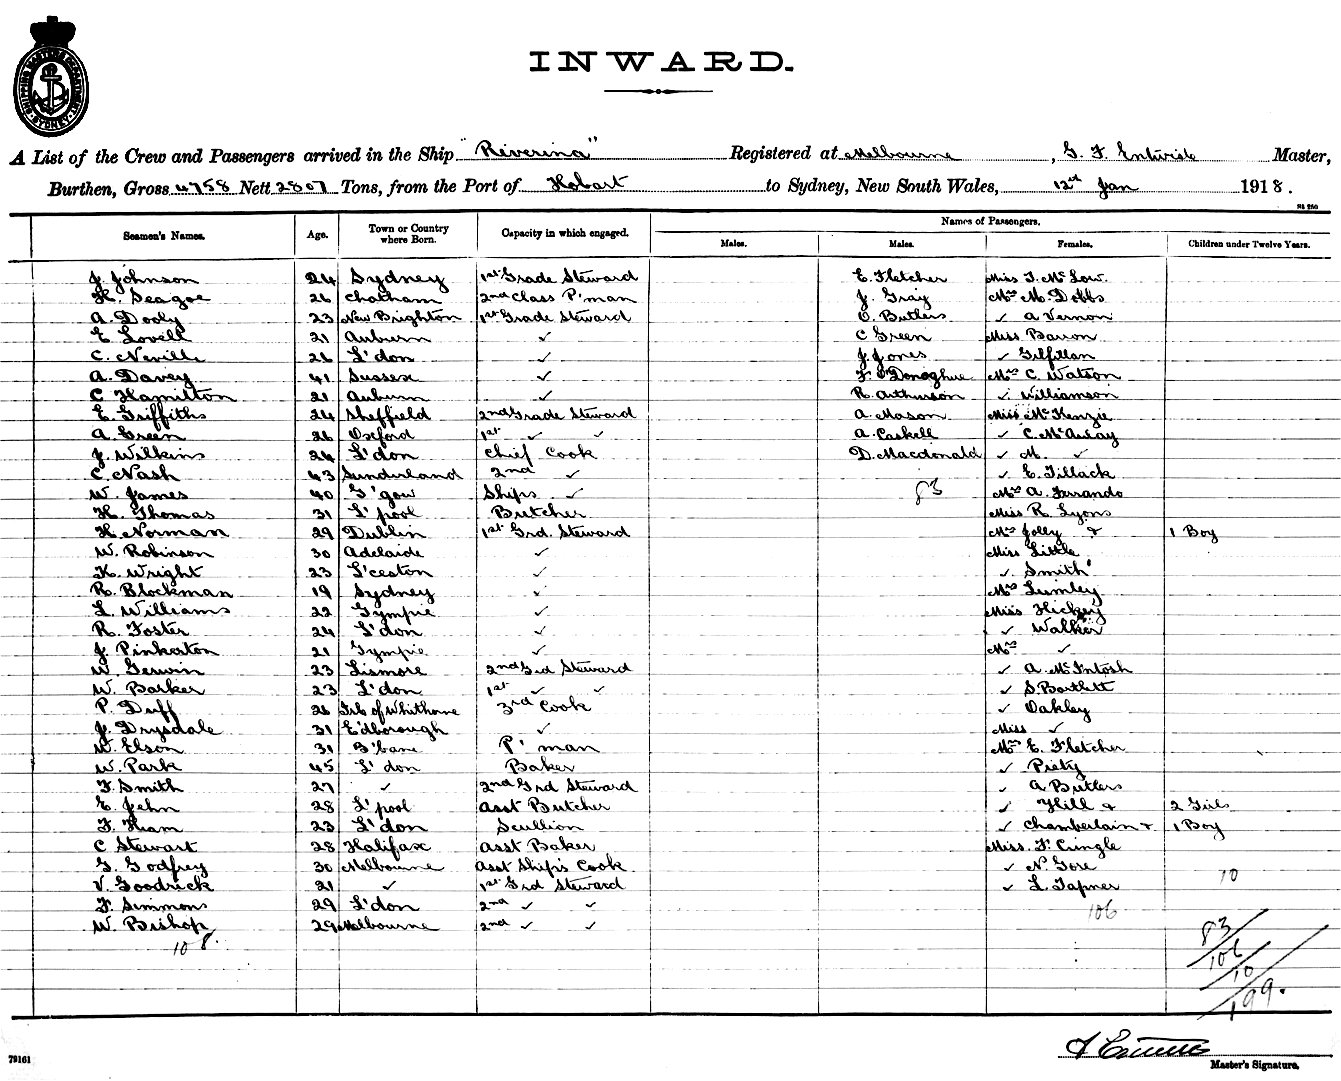 SHIPPING MASTERS DEPARTMENT SYDNEY
INWARD.
A List of the Crew and Passengers arrived in the Ship "Riverina" Registered at Melbourne, G. F. Entwisle Master,
Burthen, Gross 4758 Nett 2807 Tons, from the Port of Hobart to Sydney, New South Wales, 12th Jan 1918.
Seamen's Names. Age. Town or Country where Born. Capacity in which engaged. Names of Passengers.
Males. Males. Females. Children under Twelve Years.
J. Johnson 24 Sydney 1st Grade Steward E. Fletcher Miss T. McLow.
H. Seagoe 26 Chatham 2nd Class P'man J. Gray Mrs M. Dobbs
A. Dooly 23 New Brighton 1st Grade Steward O. Butlers ✓ A Vernon
E Lovell 21 Auburn ✓ C Green Miss Barron
C. Neville 26 L'don ✓ J. Jones ✓ Gilfillan
A. Davey 41 Sussex ✓ F. O'Donoghue Mrs C. Watson
C Hamilton 21 Auburn ✓ R. Arthurson ✓ Williamson
E. Griffiths 24 Sheffield 2nd Grade Steward A. Mason Miss McKenzie
A. Green 26 Oxford 1st ✓ ✓ A. Caskell ✓ C. McAulay
J. Wilkins 24 L'don Chief Cook D. Macdonald ✓ M. ✓
C. Nash 43 Sunderland 2nd ✓ ✓ E. Tillack
W. James 40 G'gow Ships ✓ 83 Mrs A. Farrando
H. Thomas 31 L'pool Butcher Miss R. Lyons
H. Norman 29 Dublin 1st Grd. Steward Mrs Jolly & 1 Boy
W. Robinson 30 Adelaide ✓ Miss Little
K. Wright 23 L'ceston ✓ ✓ Smith
R. Blockman 19 Sydney ✓ Mrs Lumley
L. Williams 22 Gympie ✓ Miss Hickey
R. Foster 24 L'don ✓ ✓ Walker
J. Pinkerton 21 Gympie ✓ Mrs ✓
W. Gerwin 23 Lismore 2nd Grd Steward ✓ A. McIntosh
W. Barker 23 L'don 1st ✓ ✓ ✓ S. Bartlett
P. Duff 26 Isle of Whithorne 3rd Cook ✓ Oakley
J. Drysdale 31 E'dborough ✓ Miss ✓
W. Elson 31 B'bane P'man Mrs E. Fletcher
W. Park 45 L'don Baker ✓ Piety
F. Smith 27 ✓ 2nd Grd Steward ✓ A Butlers
E. Jehn 28 L'pool Asst Butcher ✓ Hill & 2 Girls
F. Ham 23 L'don Scullion ✓ Chamberlain & 1 Boy
C Stewart 28 Halifax Asst Baker Miss. F. Cringle
G. Godfrey 30 Melbourne Asst Ship's Cook ✓ N. Gore
V. Goodrick 21 ✓ 1st Grd Steward ✓ L. Tapner 10
F. Simmons 29 L'don 2nd ✓ ✓ 106
W. Bishop 29 Melbourne 2nd ✓ ✓
108.
83
106
10
199.
Master's Signature.
79161